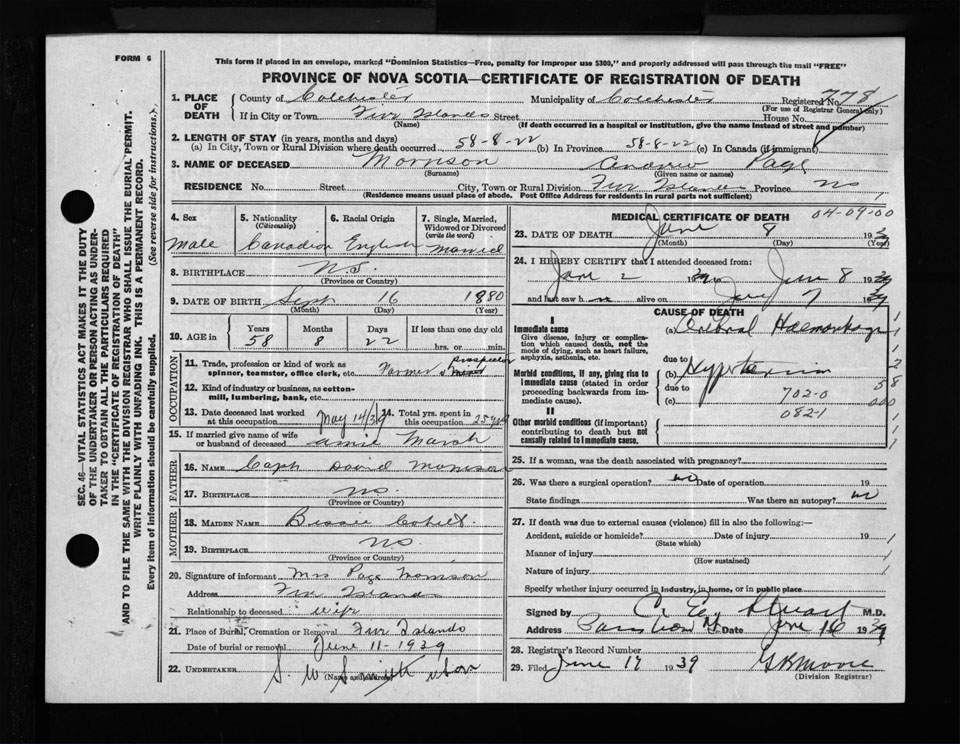 FORM 6
This form if placed in an envelope, marked "Dominion Statistics—Free, penalty for improper use $300," and properly addressed will pass through the mail "FREE"
PROVINCE OF NOVA SCOTIA—CERTIFICATE OF REGISTRATION OF DEATH
1. PLACE OF DEATH County of Colchester Municipality of Colchester Registered No. 778
(For use of Registrar General only)
If in City or Town Five Islands Street House No.
(Name) (If death occurred in a hospital or institution, give the name instead of street and number)
2. LENGTH OF STAY (in years, months and days)
(a) In City, Town or Rural Division where death occurred 58-8-22 (b) In Province 58-8-22 (c) In Canada (if immigrant)
3. NAME OF DECEASED Morrison Andrew Page
(Surname) (Given name or names)
RESIDENCE No. Street City, Town or Rural Division Five Islands Province NS
(Residence means usual place of abode. Post Office Address for residents in rural parts not sufficient)
4. Sex Male
5. Nationality (Citizenship) Canadian
6. Racial Origin English
7. Single, Married, Widowed or Divorced (write the word) Married
8. BIRTHPLACE N.S.
(Province or Country)
9. DATE OF BIRTH Sept 16 1880
(Month) (Day) (Year)
10. AGE in Years Months Days If less than one day old
58 8 22 hrs. or min.
OCCUPATION
11. Trade, profession or kind of work as spinner, teamster, office clerk, etc. Farmer & prospector
12. Kind of industry or business, as cotton-mill, lumbering, bank, etc.
13. Date deceased last worked at this occupation May 14/39 14. Total yrs. spent in this occupation 25 yrs
15. If married give name of wife or husband of deceased Annie Marsh
FATHER
16. NAME Capt David Morrison
17. BIRTHPLACE NS.
(Province or Country)
MOTHER
18. MAIDEN NAME Bessie
19. BIRTHPLACE NS.
(Province or Country)
20. Signature of informant Mrs Page Morrison
Address Five Islands
Relationship to deceased wife
21. Place of Burial, Cremation or Removal Five Islands
Date of burial or removal June 11-1939
22. UNDERTAKER S. W Smith & Son
(Name and address)
MEDICAL CERTIFICATE OF DEATH
04-09-00
23. DATE OF DEATH June 8 1939
(Month) (Day) (Year)
24. I HEREBY CERTIFY that I attended deceased from:
June 2 1939 to June 8 1939
and last saw him alive on 7 1939
CAUSE OF DEATH
I
Immediate cause
Give disease, injury or complication which caused death, not the mode of dying, such as heart failure, asphyxia, asthenia, etc.
(a) Cerebral Haemorrhage
due to
Morbid conditions, if any, giving rise to immediate cause (stated in order proceeding backwards from immediate cause).
(b) Hypertension
due to
(c)
702-0
082-1
II
Other morbid conditions (if important) contributing to death but not causally related to immediate cause.
25. If a woman, was the death associated with pregnancy?
26. Was there a surgical operation? no Date of operation 19
State findings Was there an autopsy? no
27. If death was due to external causes (violence) fill in also the following:—
Accident, suicide or homicide? Date of injury 19
(State which)
Manner of injury
(How sustained)
Nature of injury
Specify whether injury occurred in industry, in home, or in public place
Signed by C. E. Stuart M.D.
Address Parrsboro NS Date June 16 1939
28. Registrar's Record Number
29. Filed June 17 1939 G K Moore
(Division Registrar)
SEC. 46—VITAL STATISTICS ACT MAKES IT THE DUTY OF THE UNDERTAKER OR PERSON ACTING AS UNDERTAKER TO OBTAIN ALL THE PARTICULARS REQUIRED IN THE "CERTIFICATE OF REGISTRATION OF DEATH" AND TO FILE THE SAME WITH THE DIVISION REGISTRAR WHO SHALL ISSUE THE BURIAL PERMIT.
WRITE PLAINLY WITH UNFADING INK. THIS IS A PERMANENT RECORD.
Every item of information should be carefully supplied. (See reverse side for instructions.)